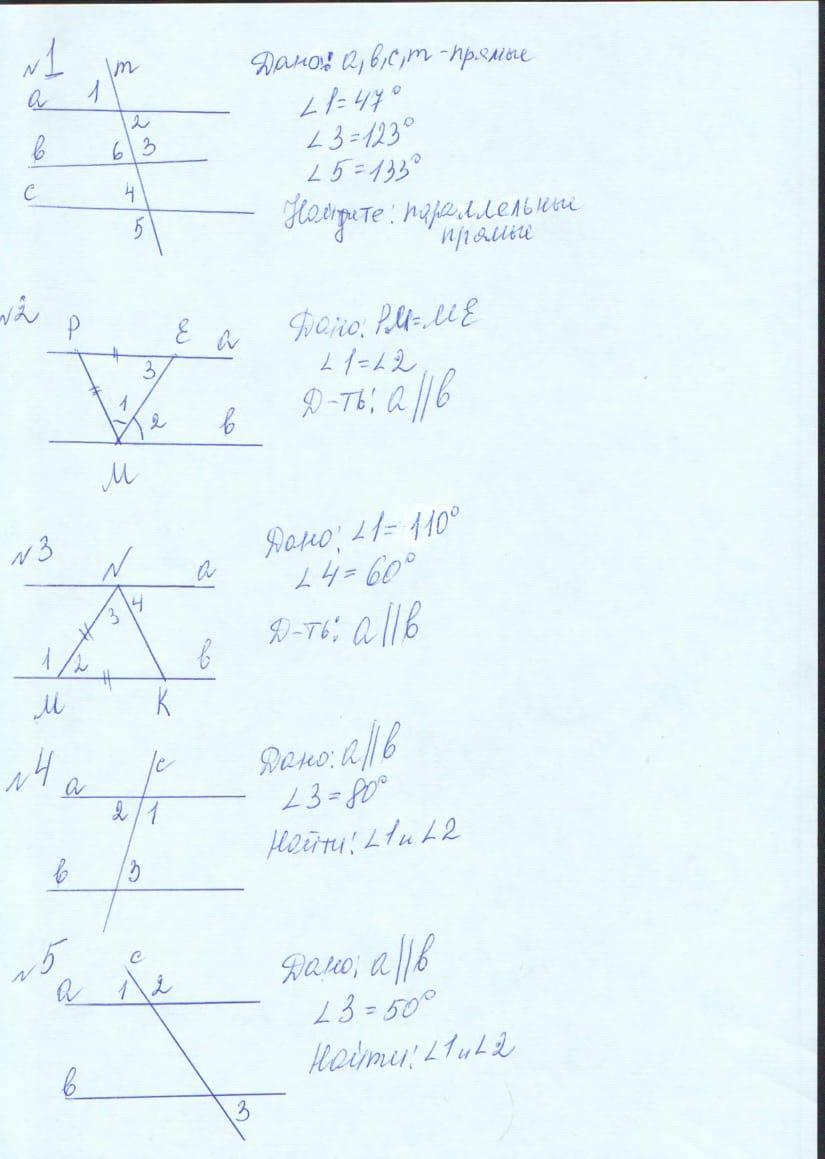 №1
m
a 1
2
в 6 3
c 4
5
Дано: а, в, с, m - прямые
∠1 = 47°
∠3 = 123°
∠5 = 133°
Найдите: параллельные
прямые
№2
P E a
3
1 2 в
M
Дано: PM = ME
∠1 = ∠2
Д-ть: a || в
№3
N a
3 4
1 2 в
M K
Дано: ∠1 = 110°
∠4 = 60°
Д-ть: a || в
№4
c
a
2 1
в 3
Дано: a || в
∠3 = 80°
Найти: ∠1 и ∠2
№5
c
a 1 2
в
3
Дано: a || в
∠3 = 50°
Найти: ∠1 и ∠2